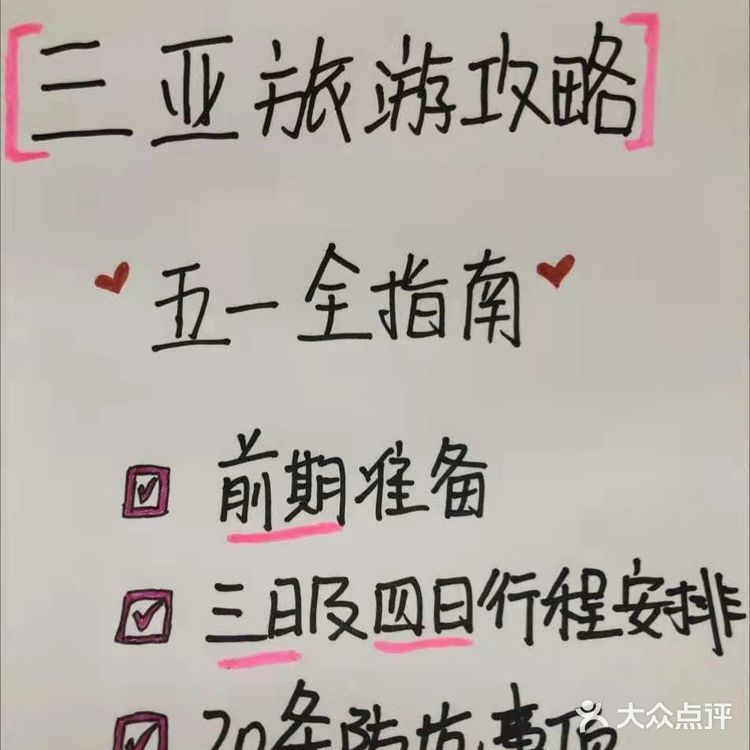 [三亚旅游攻略]
五一全指南
前期准备
三日及四日行程安排
20条防坑事项
大众点评